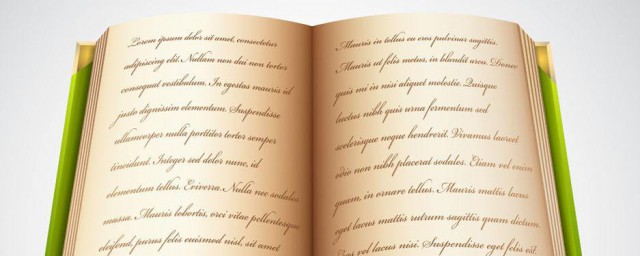 Lorem ipsum dolor sit amet, consectetur
adipiscing elit. Nullam non dui non tortor
consequat vestibulum. In egestas mauris id
justo dignissim elementum. Suspendisse
ullamcorper nulla porttitor tortor semper
tincidunt. Integer sed dolor nunc, id
elementum tellus. Eviverra. Nulla nec sodales
massa. Mauris lobortis, orci vitae pellentesque
eleifend, purus felis euismod nisl, sit amet
Mauris in tellus eu eros pulvinar sagittis.
Mauris ut felis metus, in blandit arcu. Donec
quis mi in nisi aliquet molestie. Quisque
luctus nibh quis urna fermentum sed
scelerisque neque hendrerit. Vivamus laoreet
odio non nibh placerat sodales. Etiam vel enim
quam, in ornare tellus. Mauris mattis lacus
eget lacus mattis rutrum sagittis quam dictum.
Cras vel lacus nisi. Suspendisse eget felis est.